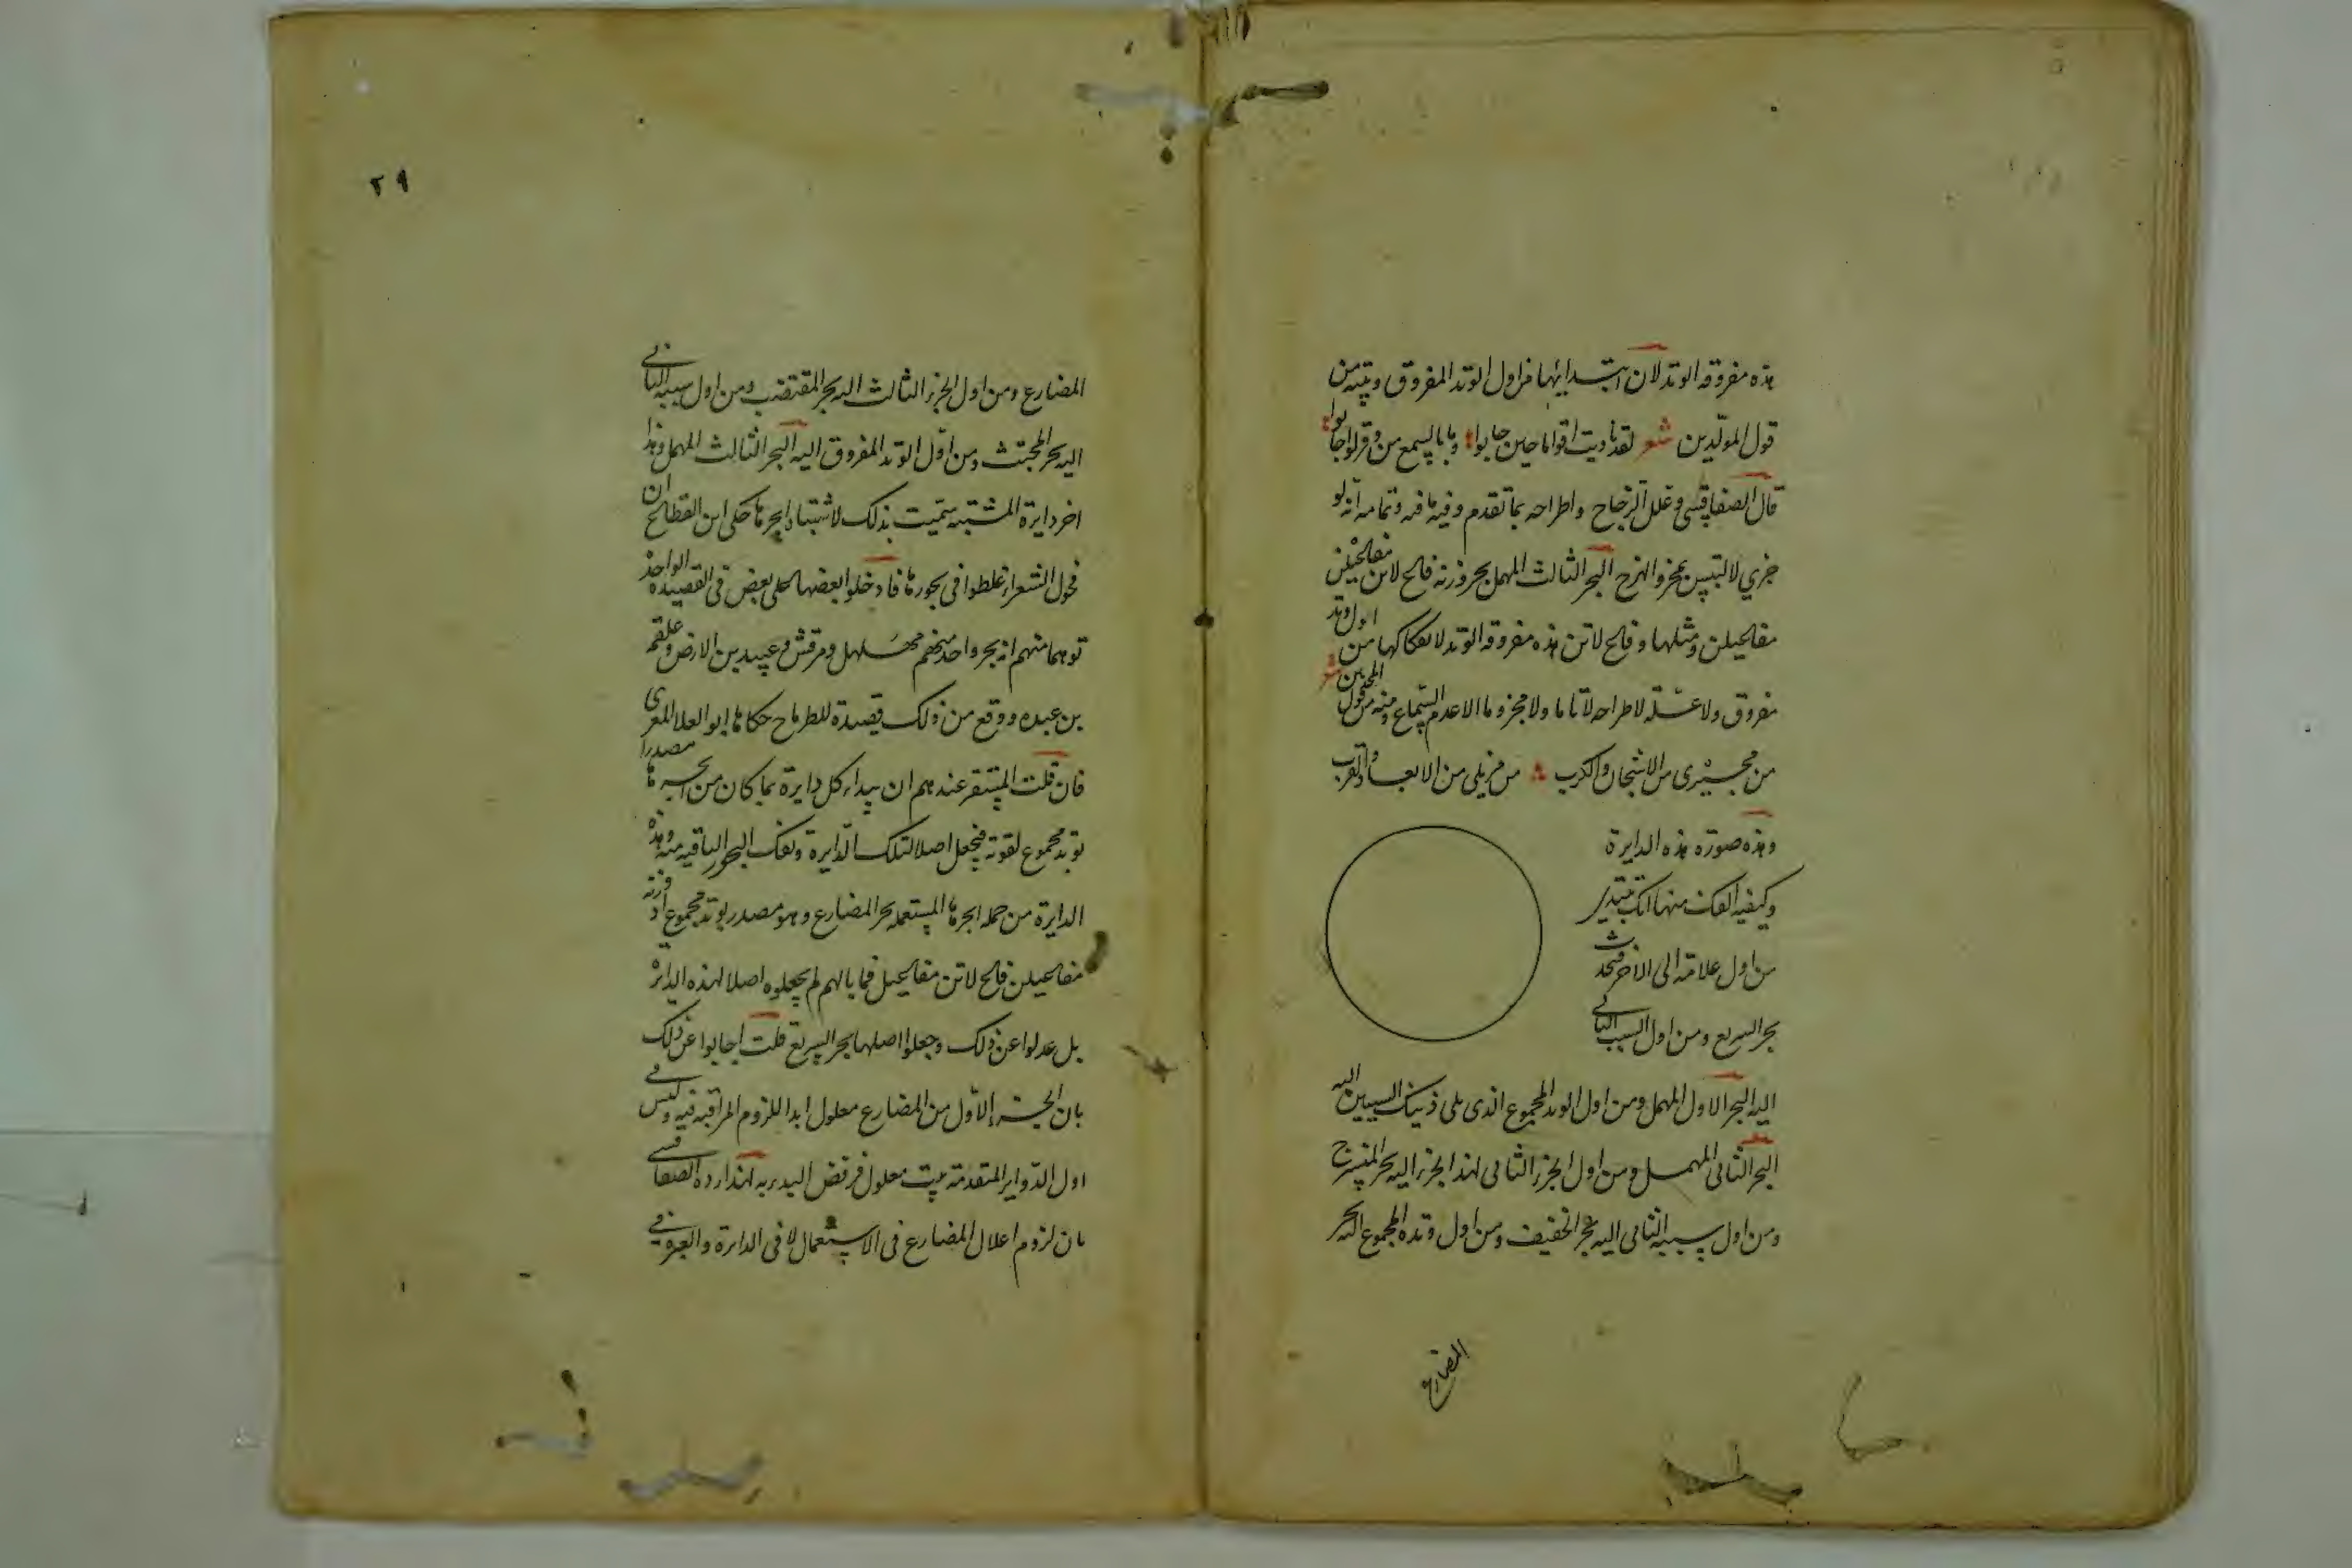 هذه مفروقه الوتد لان ابتدائها من اول الوتد المفروق وبيته من
قول المولّدين شعر لقد ناديت اقواما حين جابوا وبابا يسمع من وقر لو اجابوا
قال الصفاقسى وعلل الزجاج واطراحه بما تقدم وفيه ما فيه وتمامه انه لو
جزي لالتبس بمجزو الهزج البحر الثالث المهمل بحر وزنه فاع لاتن مفاعيلن
مفاعيلن ومثلها وفاع لاتن هذه مفروقه الوتد لانفكاكها من اول وتد
مفروق ولا علّة لاطراحه لا تاما ولا مجزوما الا عدم السّماع ومنه من قول المحدثين شعر
من مجيرى من الاشجان والكرب من مزيلى من الابعاد والقرب
وهذه صورة هذه الدايرة
وكيفيه الفك منها انك تبتدى
من اول علامة الى الاخر فيحدث
بحر السريع ومن اول السبب الثانى
اليه البحر الاول المهمل ومن اول الوتد المجموع الذى على ذينك السببين اليه
البحر الثانى المهمل ومن اول الجزء الثانى لهذا الجزء اليه بحر المنسرح
ومن اول سببيه الثانى اليه بحر الخفيف ومن اول وتده المجموع اليه بحر
المضارع
٢٩
المضارع ومن اول الجزء الثالث اليه بحر المقتضب ومن اول سببه الثانى
اليه بحر المجتث ومن اوّل الوتد المفروق اليه البحر الثالث المهمل وهذا
اخر دايرة المشتبه سمّيت بذلك لاشتباه ابحرها حكى ابن القطاع ان
فحول الشعراء غلطوا فى بحورها فادخلوا بعضها على بعض فى القصيدة الواحدة
توهما منهم انه بحر واحد منهم مهلهل ومرقش وعبيد بن الارص وعلقمه
بن عبده ووقع من ذلك قصيدة للطرماح حكاها ابو العلا المعرى
فان قلت المستقر عندهم ان يبداء كل دايرة بما كان من ابحرها مصدرا
بوتد مجموع لقوته فيجعل اصلا لتلك الدّايرة وتفك البحور الباقيه منه وهذه
الدايرة من جمله ابحرها المستعمله بحر المضارع وهو مصدر بوتد مجموع اذ وزنه
مفاعيلن فاع لاتن مفاعيلن فما بالهم لم يجعلوه اصلا لهذه الدايرة
بل عدلوا عن ذلك وجعلوا اصلها بحر السريع قلت اجابوا عن ذلك
بان الجزء الاّول من المضارع معلول ابدا للزوم المراقبه فيه وليس فى
اول الدّواير المتقدمة بيت معلول فرفض البدء به لهذا ردّه الصفاقسى
بان لزوم اعلال المضارع فى الاستعمال لا فى الدايرة والعبرة فى